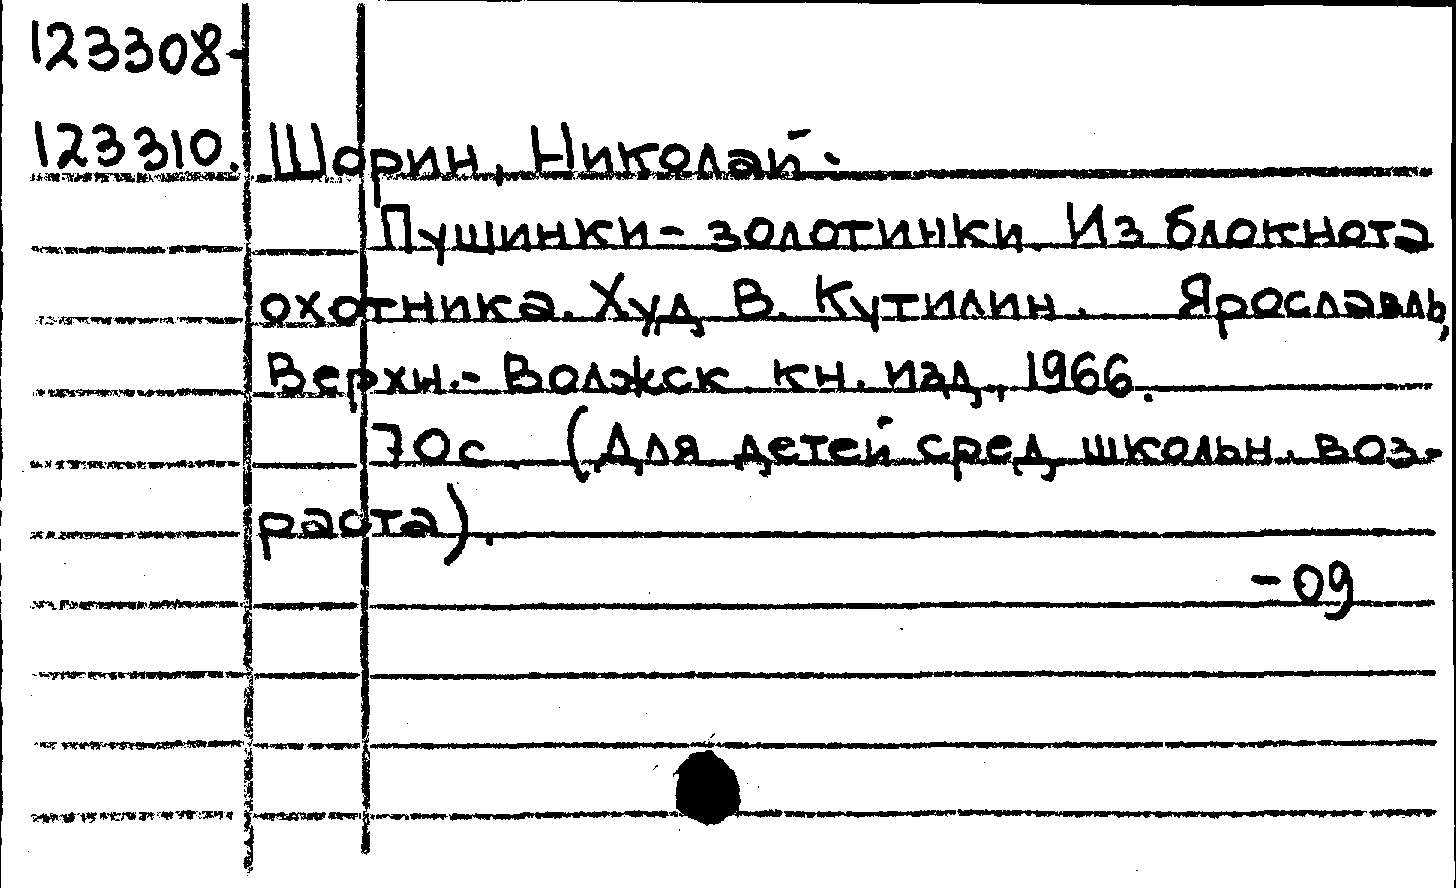 123308-
123310. Шорин, Николай.
Пушинки-золотинки. Из блокнота
охотника. Худ. В. Кутилин. Ярославль,
Верхн.-Волжск. кн. изд., 1966.
70с (Для детей сред. школьн. воз-
раста).
-09